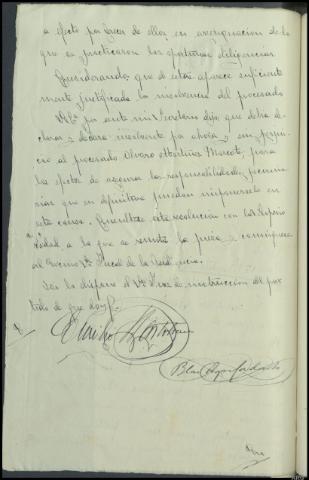 a efecto por fuera de ellos en averiguacion de lo
que se practicaron las oportunas diligencias
Considerando, que de estas aparece suficiente
mente justificada la insolvencia del procesado
S.Sª por ante mi Secretario dijo que debia de
clarar y declara insolvente por ahora y sin perjui
cio al procesado Alvaro Martinez Marcote, para
los efectos de asegurar las responsabilidades pecunia
rias que en definitiva puedan imponersele en
esta causa. Consultese esta resolucion con la Superio
ridad a la que se remita la pieza y comuniquese
al Excmo. Sr. Fiscal de la Audiencia.
Asi lo dispone el Sr. Juez de instruccion del par
tido de que doy fe.
Blas